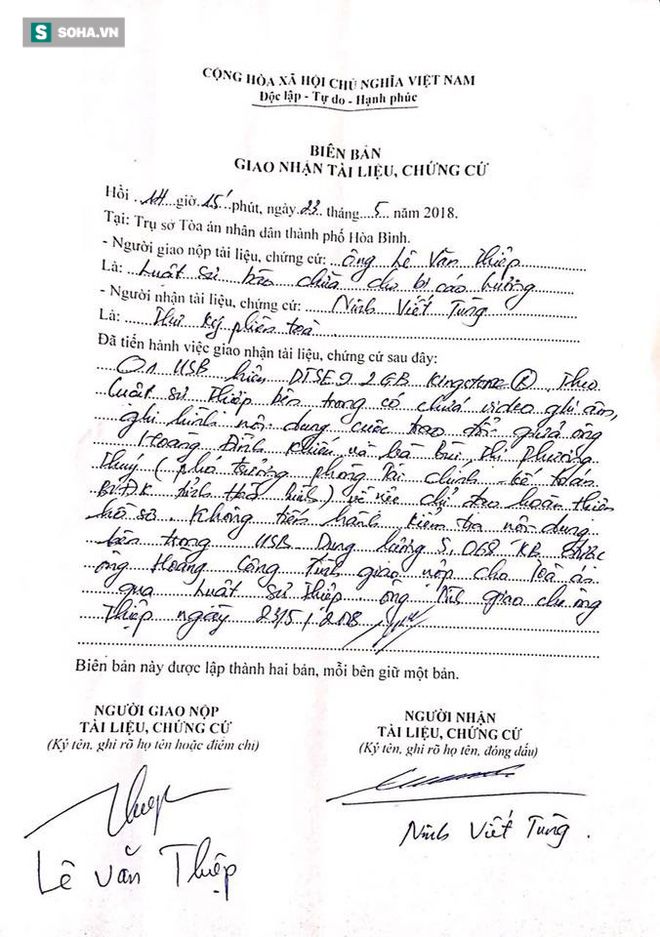 S SOHA.VN
CỘNG HÒA XÃ HỘI CHỦ NGHĨA VIỆT NAM
Độc lập - Tự do - Hạnh phúc
BIÊN BẢN
GIAO NHẬN TÀI LIỆU, CHỨNG CỨ
Hồi 14 giờ 15 phút, ngày 23 tháng 5 năm 2018.
Tại: Trụ sở Tòa án nhân dân thành phố Hòa Bình.
- Người giao nộp tài liệu, chứng cứ: ông Lê Văn Thiệp
Là: Luật sư bào chữa cho bị cáo Lương
- Người nhận tài liệu, chứng cứ: Ninh Viết Tùng
Là: Thư ký phiên toà
Đã tiến hành việc giao nhận tài liệu, chứng cứ sau đây:
01 USB hiệu DTSE9 2GB Kingstone ® Theo
Luật sư Thiệp bên trong có chứa video ghi âm,
ghi hình nội dung cuộc trao đổi giữa ông
Hoàng Đình Khiếu và bà Bùi Thị Phương
Thuý (phó trưởng phòng tài chính, kế toán
BVĐK tỉnh Hoà Bình) về việc chỉ đạo hoàn thiện
hồ sơ. Không tiến hành kiểm tra nội dung
bên trong USB Dung lượng 5,068 KB được
ông Hoàng Công Tình giao nộp cho toà án
qua Luật sư Thiệp ông Tình giao cho ông
Thiệp ngày 23/5/2018
Biên bản này được lập thành hai bản, mỗi bên giữ một bản.
NGƯỜI GIAO NỘP
TÀI LIỆU, CHỨNG CỨ
(Ký tên, ghi rõ họ tên hoặc điểm chỉ)
NGƯỜI NHẬN
TÀI LIỆU, CHỨNG CỨ
(Ký tên, ghi rõ họ tên, đóng dấu)
Thiệp
Lê Văn Thiệp
Ninh Viết Tùng.